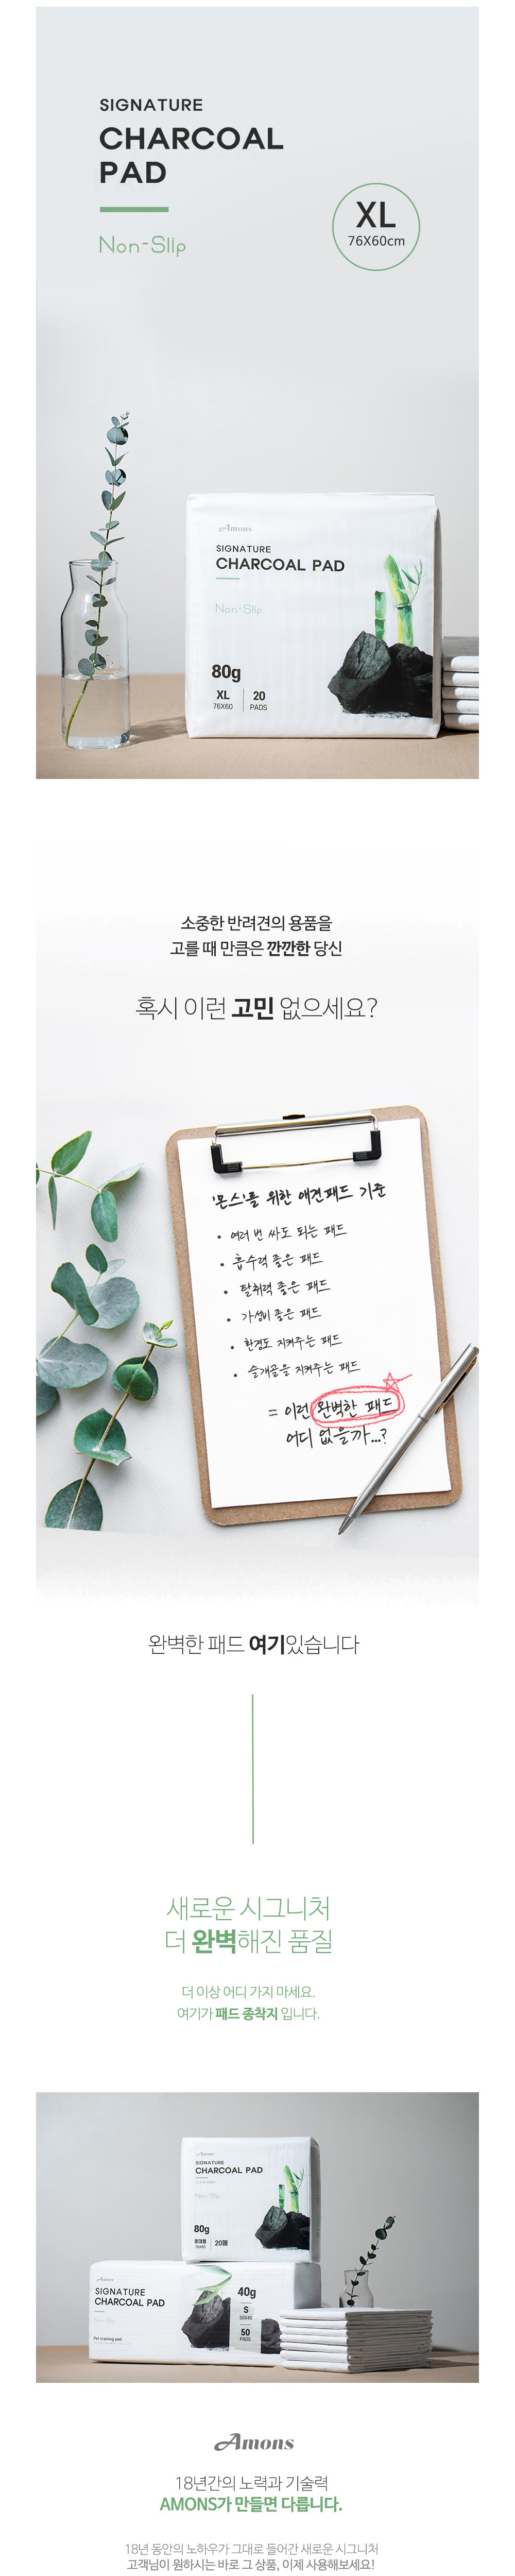 SIGNATURE
CHARCOAL
PAD
Non-Slip
XL
76X60cm
Amons
SIGNATURE
CHARCOAL PAD
Non-Slip
80g
XL
76X60
20
PADS
소중한 반려견의 용품을
고를 때 만큼은 깐깐한 당신
혹시 이런 고민 없으세요?
'몬스'를 위한 애견패드 기준
• 여러 번 싸도 되는 패드
• 흡수력 좋은 패드
• 탈취력 좋은 패드
• 가성비 좋은 패드
• 환경도 지켜주는 패드
• 슬개골을 지켜주는 패드
= 이런 완벽한 패드
어디 없을까...?
완벽한 패드 여기있습니다
새로운 시그니처
더 완벽해진 품질
더 이상 어디 가지 마세요.
여기가 패드 종착지 입니다.
Amons
SIGNATURE
CHARCOAL PAD
Non-Slip
80g
초대형
76X60
20매
Amons
SIGNATURE
CHARCOAL PAD
Non-Slip
Pet training pad
40g
S
50X40
50
PADS
Amons
18년간의 노력과 기술력
AMONS가 만들면 다릅니다.
18년 동안의 노하우가 그대로 들어간 새로운 시그니처
고객님이 원하시는 바로 그 상품, 이제 사용해보세요!